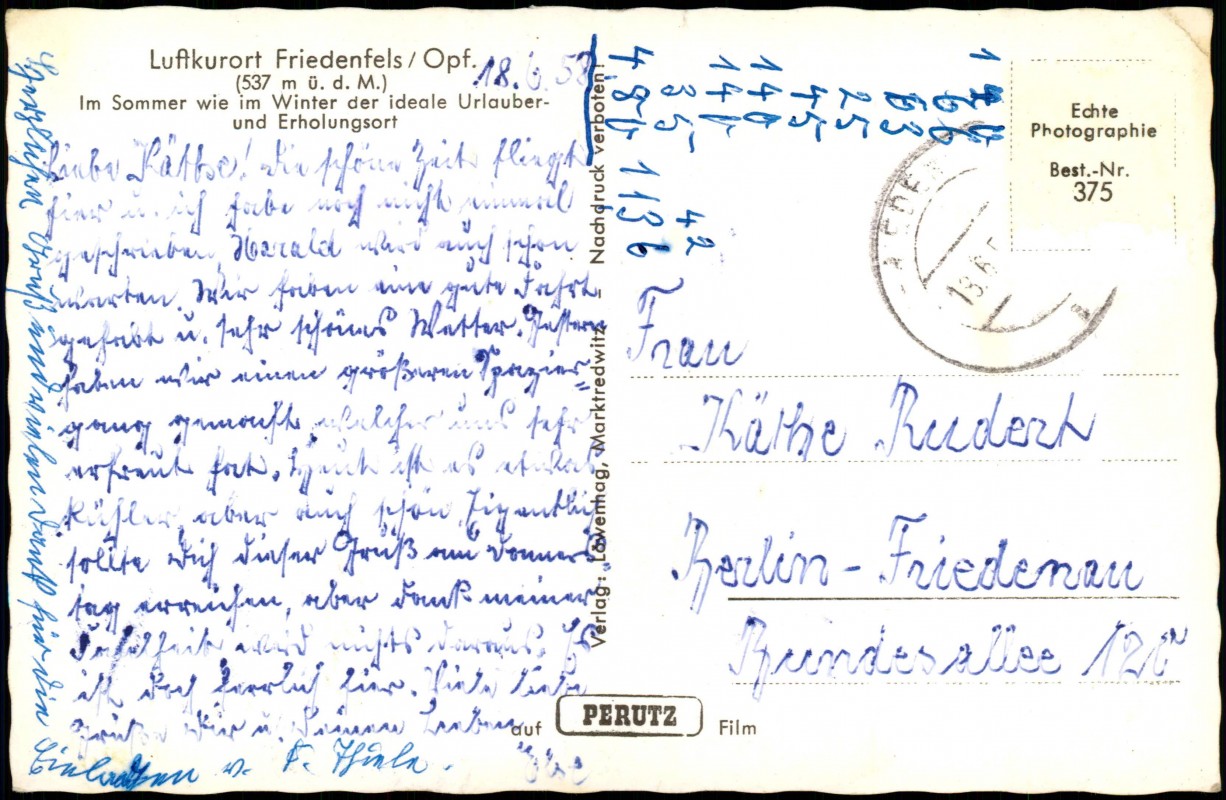 Luftkurort Friedenfels / Opf.
(537 m ü. d. M.)
Im Sommer wie im Winter der ideale Urlauber-
und Erholungsort
18.6.58
Liebe Käthe! Die schöne Zeit fliegt
hier u. ich habe noch nicht einmal
geschrieben, Harald wird auch schon
warten. Wir haben eine gute Fahrt
gehabt u. sehr schönes Wetter. Gestern
haben wir einen größeren Spazier=
gang gemacht, welcher uns sehr
erfreut hat. Heute ist es etwas
kühler, aber auch schön. Eigentlich
sollte Dich dieser Gruß am Donners
tag erreichen, aber dank meiner
Faulheit wird nichts daraus. Es
ist doch herrlich hier. Viele liebe
Grüße Dir u. Deinen Lieben
Herzlichen Gruß und vielen Dank für die
Einladung v. F. Thiele.
Verlag: Löwenhag, Marktredwitz - Nachdruck verboten!
auf PERUTZ Film
Echte
Photographie
Best.-Nr.
375
Frau
Käthe Rudert
Berlin - Friedenau
Bundesallee